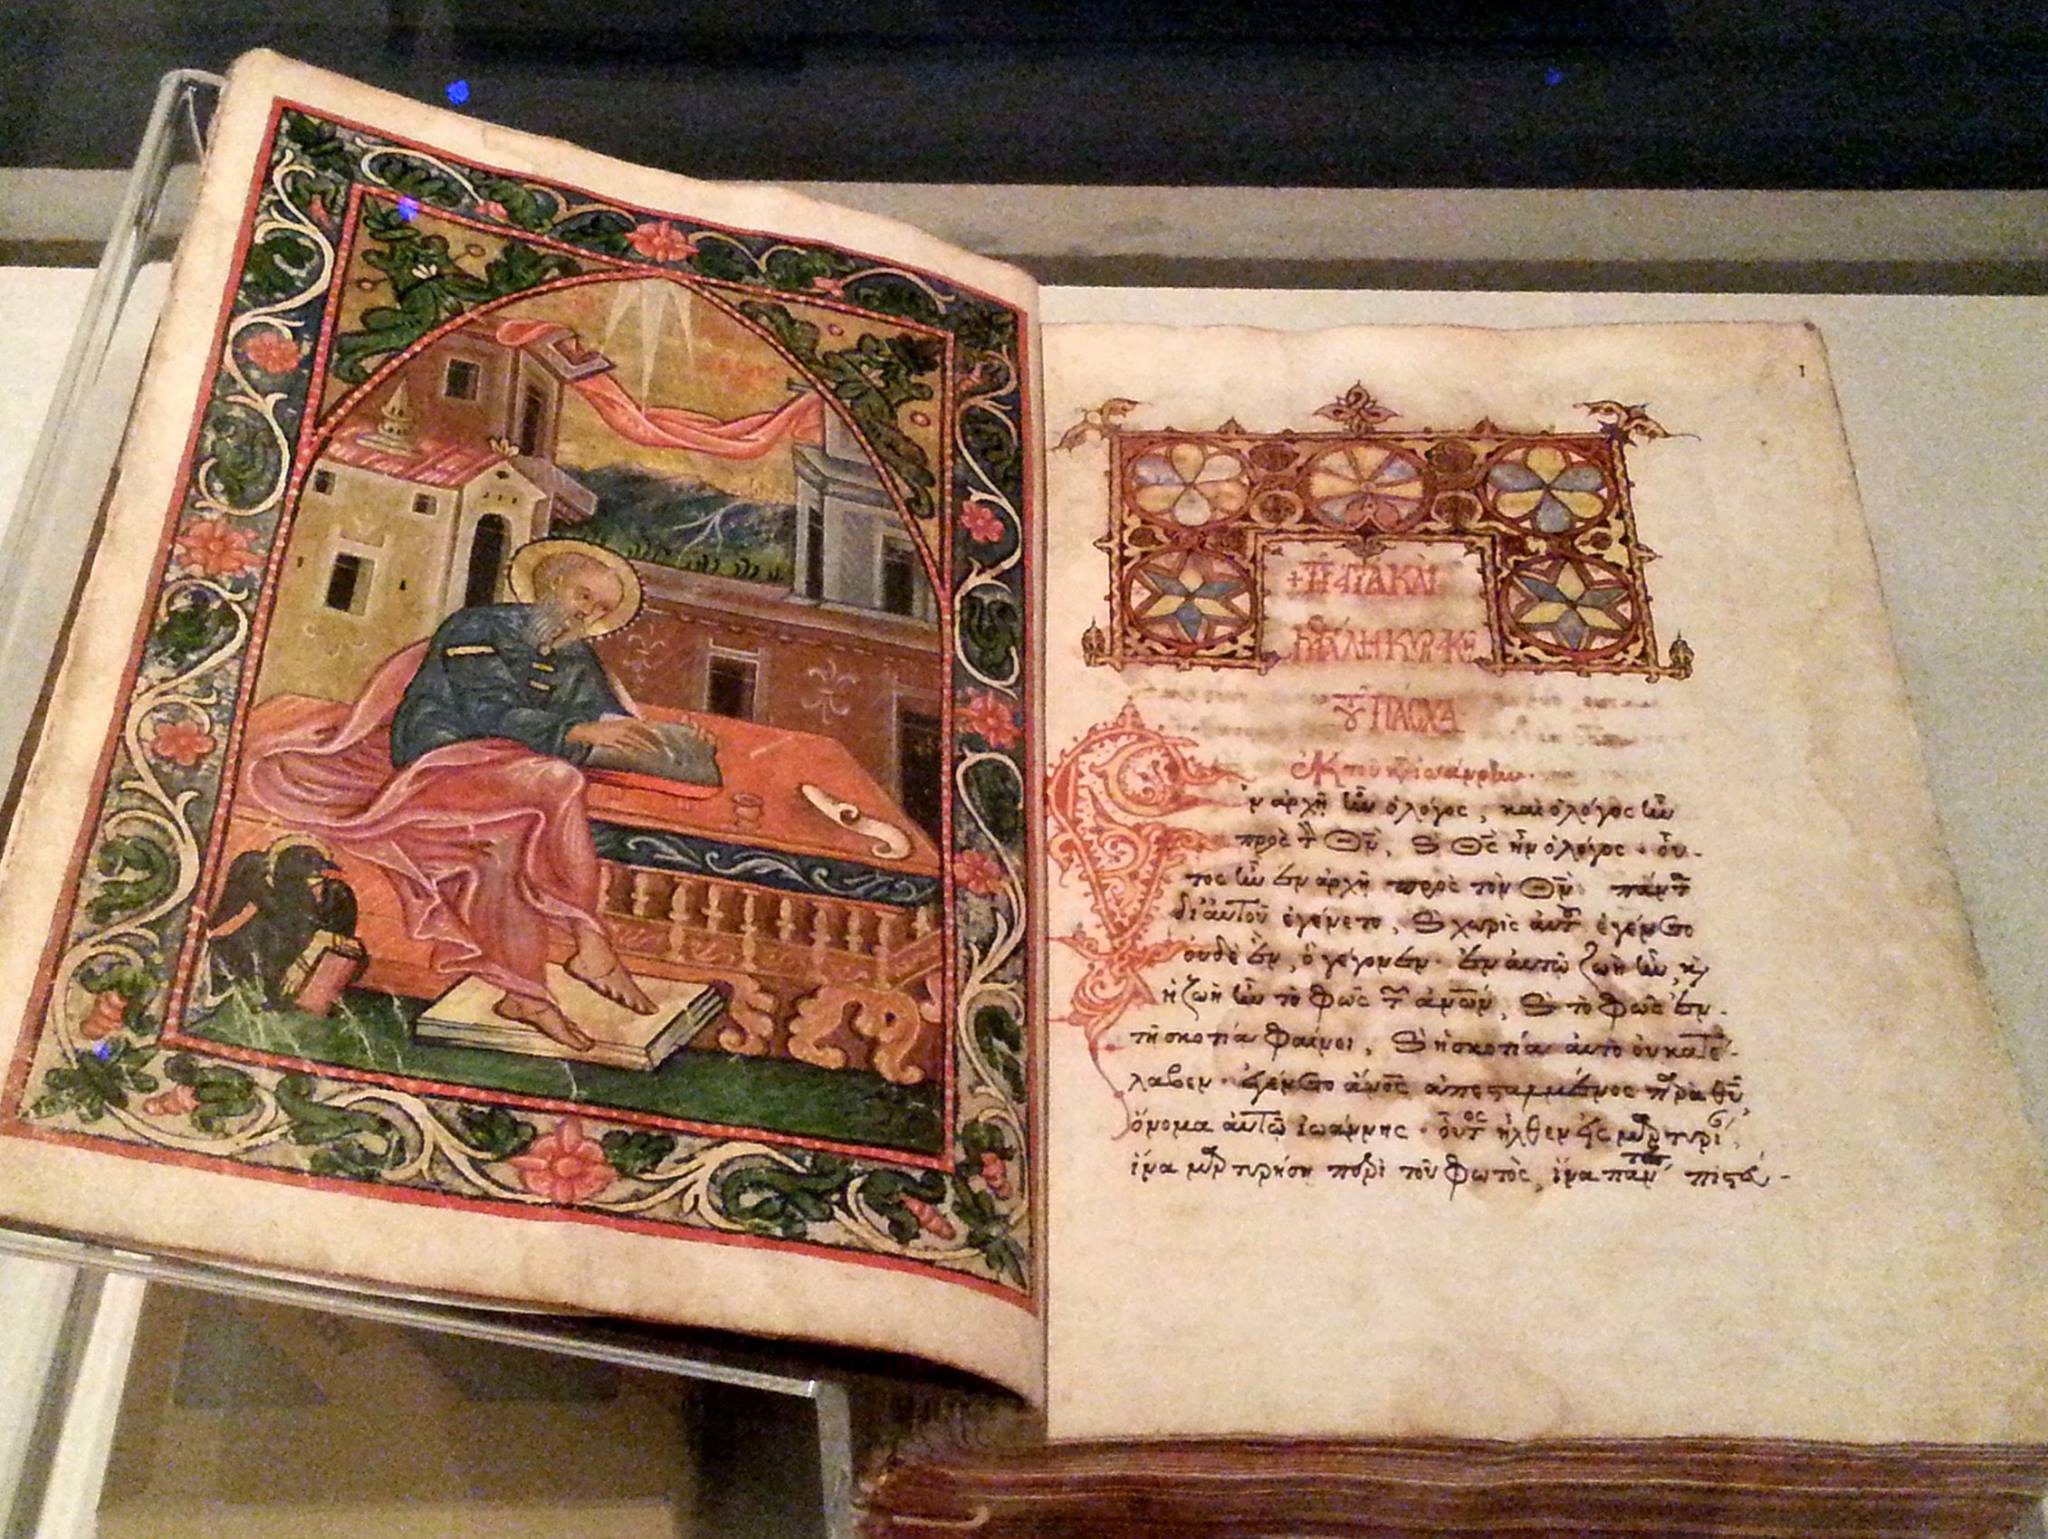 1
+ ΤΗ ΑΓΙΑ ΚΑΙ
ΜΕΓΑΛΗ ΚΥΡΙΑΚΗ
Τȣ͂ ΠΑΣΧΑ
ἐκ τοῦ κατὰ ἰωάννην.
Ἐν ἀρχῆ ἦν ὁ λόγος, καὶ ὁ λόγος ἦν
πρὸς τ̀ Θν̅, ϗ Θς̅ ἦν ὁ λόγος. οὗ-
τος ἦν ἐν ἀρχῆ πρὸς τὸν Θν̅. πάντ
δι' αὐτοῦ ἐγένετο, ϗ χωρὶς αὐτ͂ ἐγένετο
οὐδὲ ἓν, ὃ γέγονεν. ἐν αὐτῶ ζωὴ ἦν, ϗ
ἡ ζωὴ ἦν τὸ φῶς τ͂ ἀνω̅ν, ϗ τὸ φῶς ἐν
τῆ σκοτία φαίνει, ϗ ἡ σκοτία αὐτὸ οὐ κατέ-
λαβεν. ἐγένετο ἄνο̅ς ἀπεσταλμένος παρὰ θυ̅
ὄνομα αὐτῶ ἰωάννης. οὗτος ἦλθεν εἰς μαρτυρί
ἵνα μαρτυρήση περὶ τοῦ φωτὸς, ἵνα παντες πιστεύ-